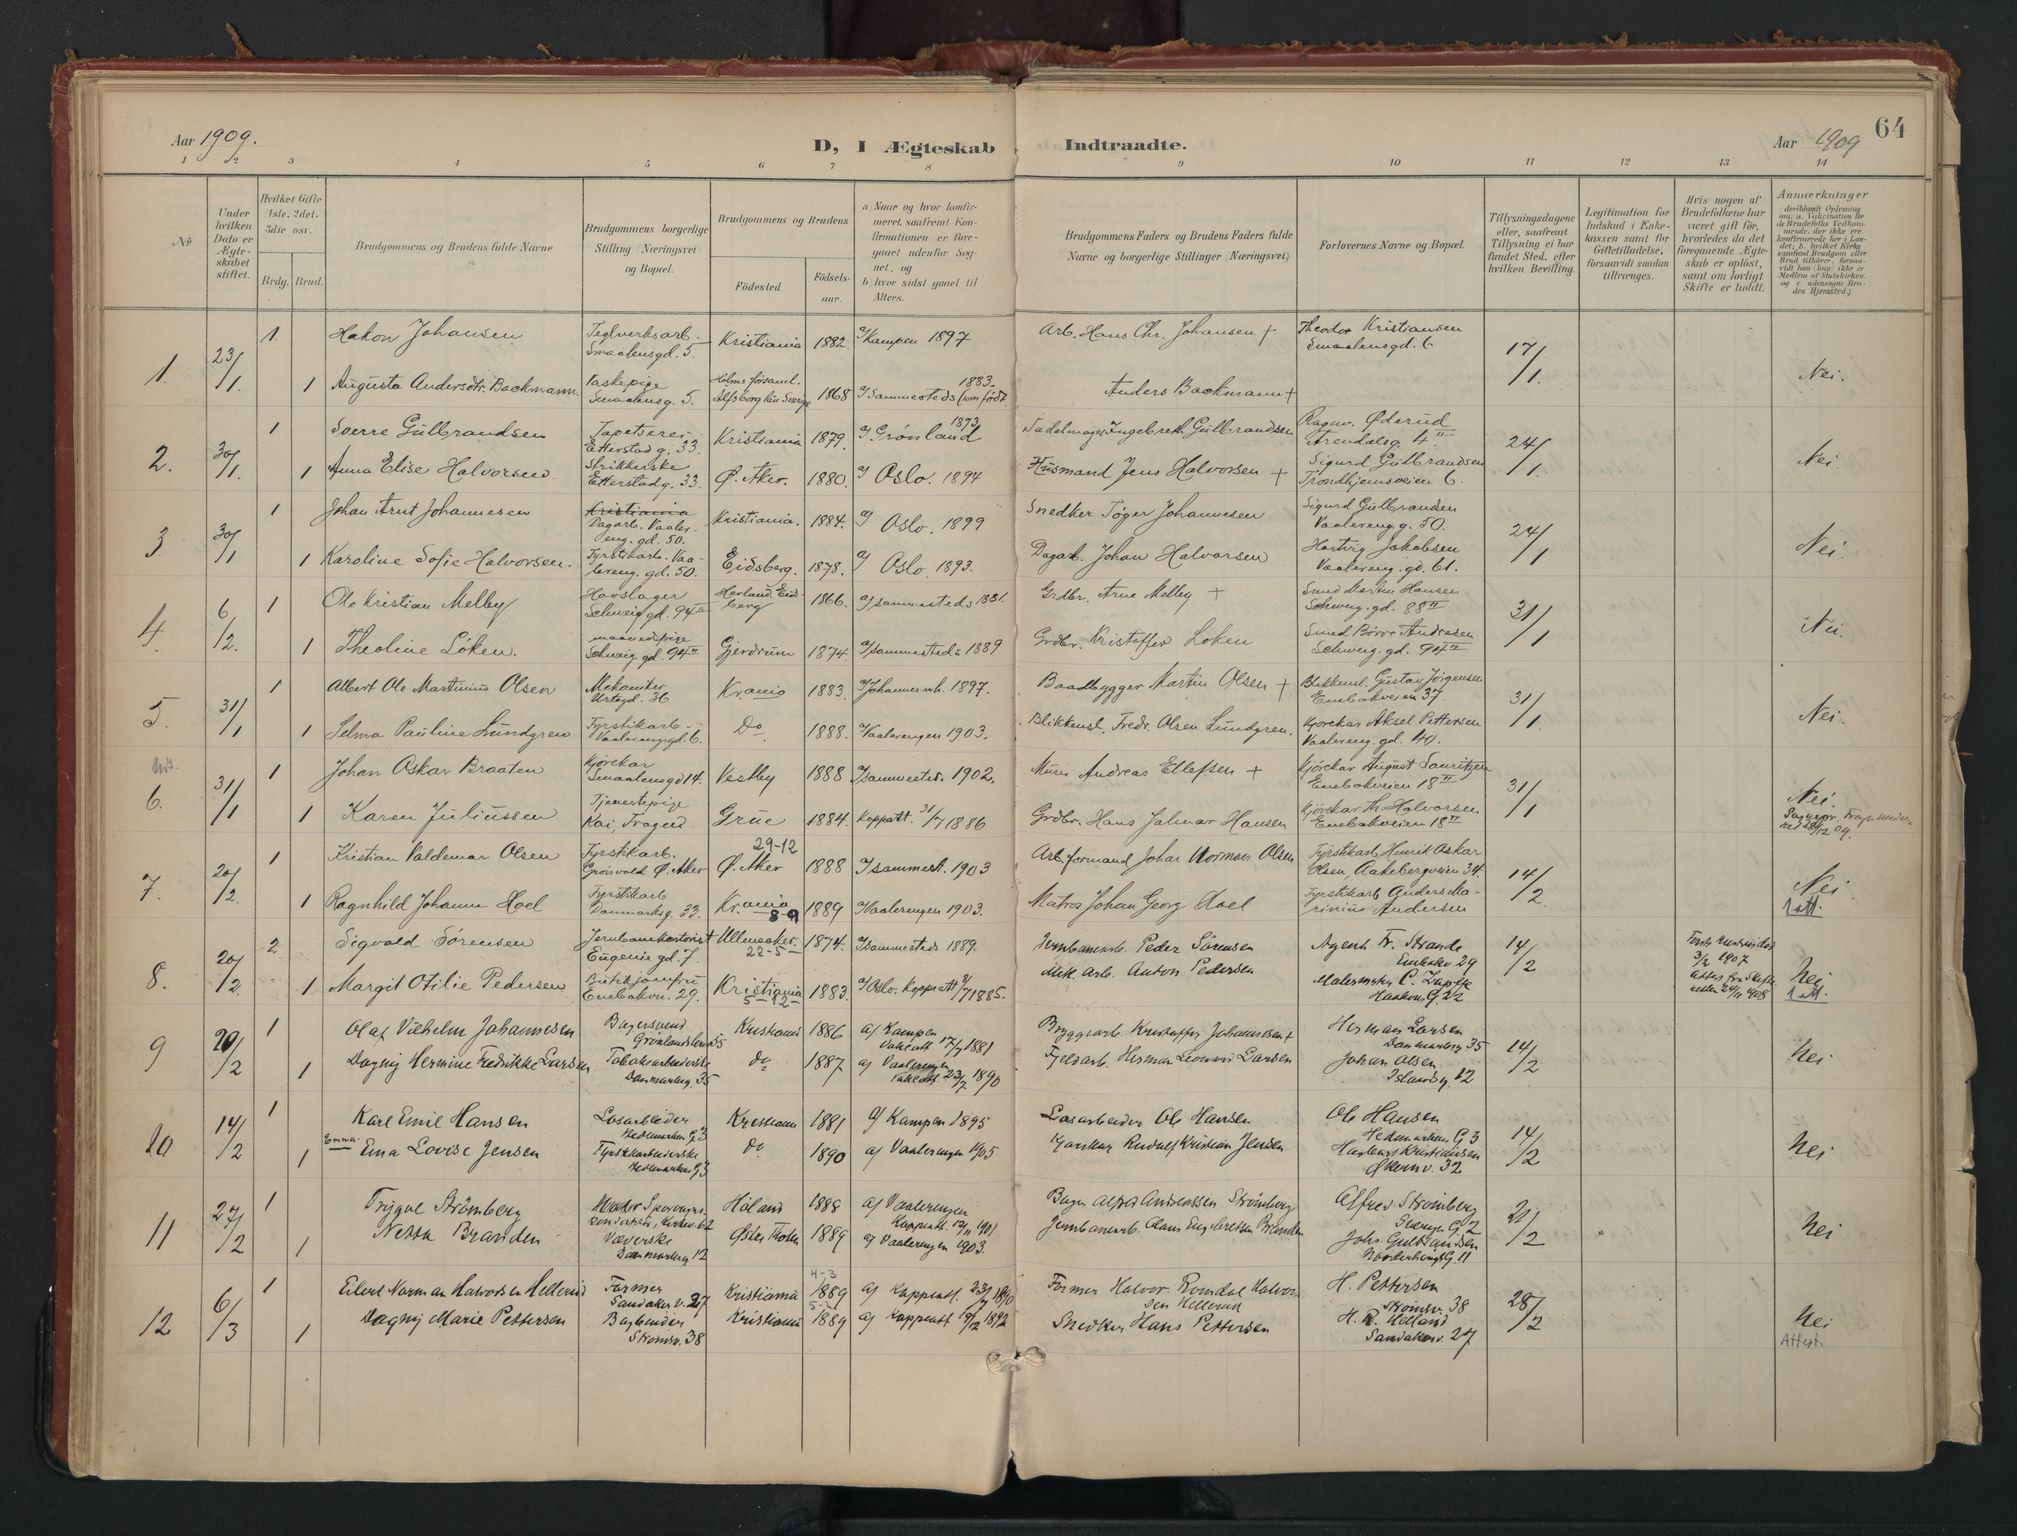 Aar 1909.
D, I Ægteskab
Indtraadte.
Aar 1909
64
1 2 3 4 5 6 7 8 9 10 11 12 13 14
No
Under hvilken Dato er Ægteskabet stiftet.
Hvilket Gifte 1ste, 2det, 3die osv.
Brdg. Brud.
Brudgommens og Brudens fulde Navne
Brudgommens borgerlige Stilling (Næringsvei) og Bopæl.
Brudgommens og Brudens
Fødested.
Fødselsaar.
a) Naar og hvor konfirmeret, saafremt Konfirmationen er foregaaet udenfor Sognet, og
b) hvor sidst gaaet til Alters.
Brudgommens Faders og Brudens Faders fulde Navne og borgerlige Stillinger (Næringsvei)
Forlovernes Navne og Bopæl.
Tillysningsdagene eller, saafremt Tillysning ei har fundet Sted, efter hvilken Bevilling.
Legitimation for Indskud i Enkekassen samt for Giftetilladelse, forsaavidt saadan tiltrænges.
Hvis nogen af Brudefolkene har været gift før, hvorledes da det foregaaende Ægteskab er opløst, samt om lovligt Skifte er holdt.
Anmærkninger
(deriblandt Oplysning om: a. Vakcination for de Brudefolks Vedkommende, der ikke ere konfirmerede her i Landet; b. hvilket Kirkesamfund Brudgom eller Brud tilhører, forsaavidt han (hun) ikke er Medlem af Statskirken, og c. udensogns Brudes Hjemsted.)
1. 23/1. 1 Hakon Johansen Teglverksarb. Smaalensgd. 5. Kristiania 1882 a/ Kampen 1897 Arb. Hans Chr. Johansen + Theodor Kristiansen Smaalensgd. 6 17/1. Nei.
1 Augusta Andersdtr. Backmann Smaalensg. 5. 1868 1883. Anders Backmann +
2. 30/1 1 Sverre Gulbrandsen Tapetserer Etterstadg. 33. Kristiania 1879. a/ Grønland 1873 Sadelmager Ingebreth Gulbrandsen Ragnv. Øderud Arendalsg. 4 II 24/1 Nei
1 Anna Elise Halvorsen Strikkerske Etterstadg. 33. Ø. Aker. 1880. a/ Oslo. 1894 Husmand Jens Halvorsen + Sigurd Gulbrandsen Trondhjemsveien 6.
3 30/1 1 Johan Arnt Johannesen Kristiania Dagarb. Vaalereng. gd. 50. Kristiania. 1884. a/ Oslo. 1899 Snedker Tøger Johannesen Sigurd Gulbrandsen Vaalereng. g. 50. 24/1 Nei.
1 Karoline Sofie Halvorsen. Fyrstikarb. Vaalereng. gd. 50. Eidsberg. 1878. a/ Oslo. 1893. Dagarb. Johan Halvorsen Hartvig Jakobsen Vaalereng. gd. 61.
4. 6/2. 1 Ole Kristian Melby Hovslager Schweig. gd. 94 II Herland. Eidsberg 1866. a/ sammesteds 1881. Grdbr. Arne Melby + Smed Martin Hansen Schweig. gd. 88 II 31/1 Nei.
1 Theoline Løken. Schweig. gd. 94 II Gjerdrum 1874. a/ sammesteds 1889 Grdbr. Kristoffer Løken Smed Børre Andresen Schweig. gd. 94 II
5. 31/1 1 Albert Ole Martinius Olsen Mekaniker Urtegd. 36 Kr.ania 1883. a/ Johannes. 1897. Baadbygger Martin Olsen + Blikkensl. Gustav Jørgensen Enebakveien 37 31/1 Nei.
1 Selma Pauline Lundgren Fyrstikarb. Vaalerengsgd. 6. Do 1888. a/ Vaalerengen 1903. Blikkensl. Fredr. Olsen Lundgren. Kjørekar Aksel Pettersen Vaalereng. gd. 40.
6. 31/1 1 Johan Oskar Braaten Kjørekar Smaalensgd 14. Vestby 1888 a/ sammesteds. 1902. Murer Andreas Ellefsen + Kjørekar August Lauritzen Enebakveien 18 II 31/1 Nei.
1 Karen Juliussen Tjenestepige Grue 1884. Koppatt. 31/7 1886 Grdbr. Hans Jalmar Hansen Kjørekar Th. Halvorsen Enebakveien 18 II
7. 20/2 1 Kristian Valdemar Olsen Fyrstikarb. Grønvold Ø. Aker 29-12 Ø. Aker 1888 a/ sammest. 1903 Arb.formand Johan Norman Olsen Fyrstikarb. Henrik Oskar Olsen, Aakebergveien 34. 14/2. Nei
1 Ragnhild Johanne Hoel Fyrstikarb. Danmarksg. 33. Kr.ania 8-9 1889 a/ Vaalerengen 1903. Matros Johan Georg Hoel Fyrstikarb Anders Marinius Andersen 1 att.
8. 20/2. 2 Sigvald Sørensen Jernbanekontorist Eugenie gd. 7. Ullensaker. 22-5 1874. a/ sammesteds 1889. Jernbanearb. Peder Sørensen Agent Fr. Strande Enebakv 29 14/2 3/2 1907 Nei
1 Margit Otilie Pedersen Butikjomfru Enebakvei. 29. Kristiania 5-12 1883. a/ Oslo. Koppatt 9/7 1885. Mek arb. Anton Pedersen 1 att.
9 20/2 1 Olaf Vilhelm Johannesen Bagersvend Grønlandsleret 55 Kristiania 1886 a/ Kampen Vakcatt 17/7 1881 Bryggearb. Kristoffer Johannesen + Herman Larsen Danmarksg 35 14/2 Nei
1 Dagny Hermine Fredrikke Larsen Tobaksarbeiderske Danmarksg. 35 do 1887 a/ Vaalerengen Vakcatt. 23/7 1890 Fjeldarb. Herman Leonard Larsen Johan Olsen Islandsg. 12
10 14/2 1 Karl Emil Hansen Løsarbeider Hedemarken G. 3 Kristiania 1881 a/ Kampen 1895 Løsarbeider Ole Hansen Ole Hansen Hedemarkens G 3 14/2 Nei
1 Emma Ema Lovise Jensen Fyrstikkarbeiderske Hedemarken G 3 do 1890 a/ Vaalerengen 1905 Rudolf Kristian Jensen Kristiansen Økernv. 32
11 27/2 1 Trygve Strømberg Høland 1888 a/ Vaalerengen Koppatt. 12/11 1901 Bager Alfred Andreassen Strømberg Alfred Strømberg Sverges G. 2 21/2 Nei
1 Netta Branden Væverske Danmarksg 12 Østre Thoten 1889 a/ Vaalerengen 1903. Jernbanearb. Olaus Engebretsen Branden Johs Gulbrandsen G 11
12 6/3 1 Eilert Norman Halvorsen Hellerud Former Sandaker v. 27 Kristiania 4-3 1889 a/ Koppatt. 23/9 1890 Former Halvor Romdal Halvorsen Hellerud H. Pettersen Strømsv. 38 28/2 Nei
1 Dagny Marie Pettersen Strømsv. 38 Kristiania 1889 a/ Koppatt 19/12 1892 Snedker Hans Pettersen H. R. Helland Sandakerv. 27 Attest